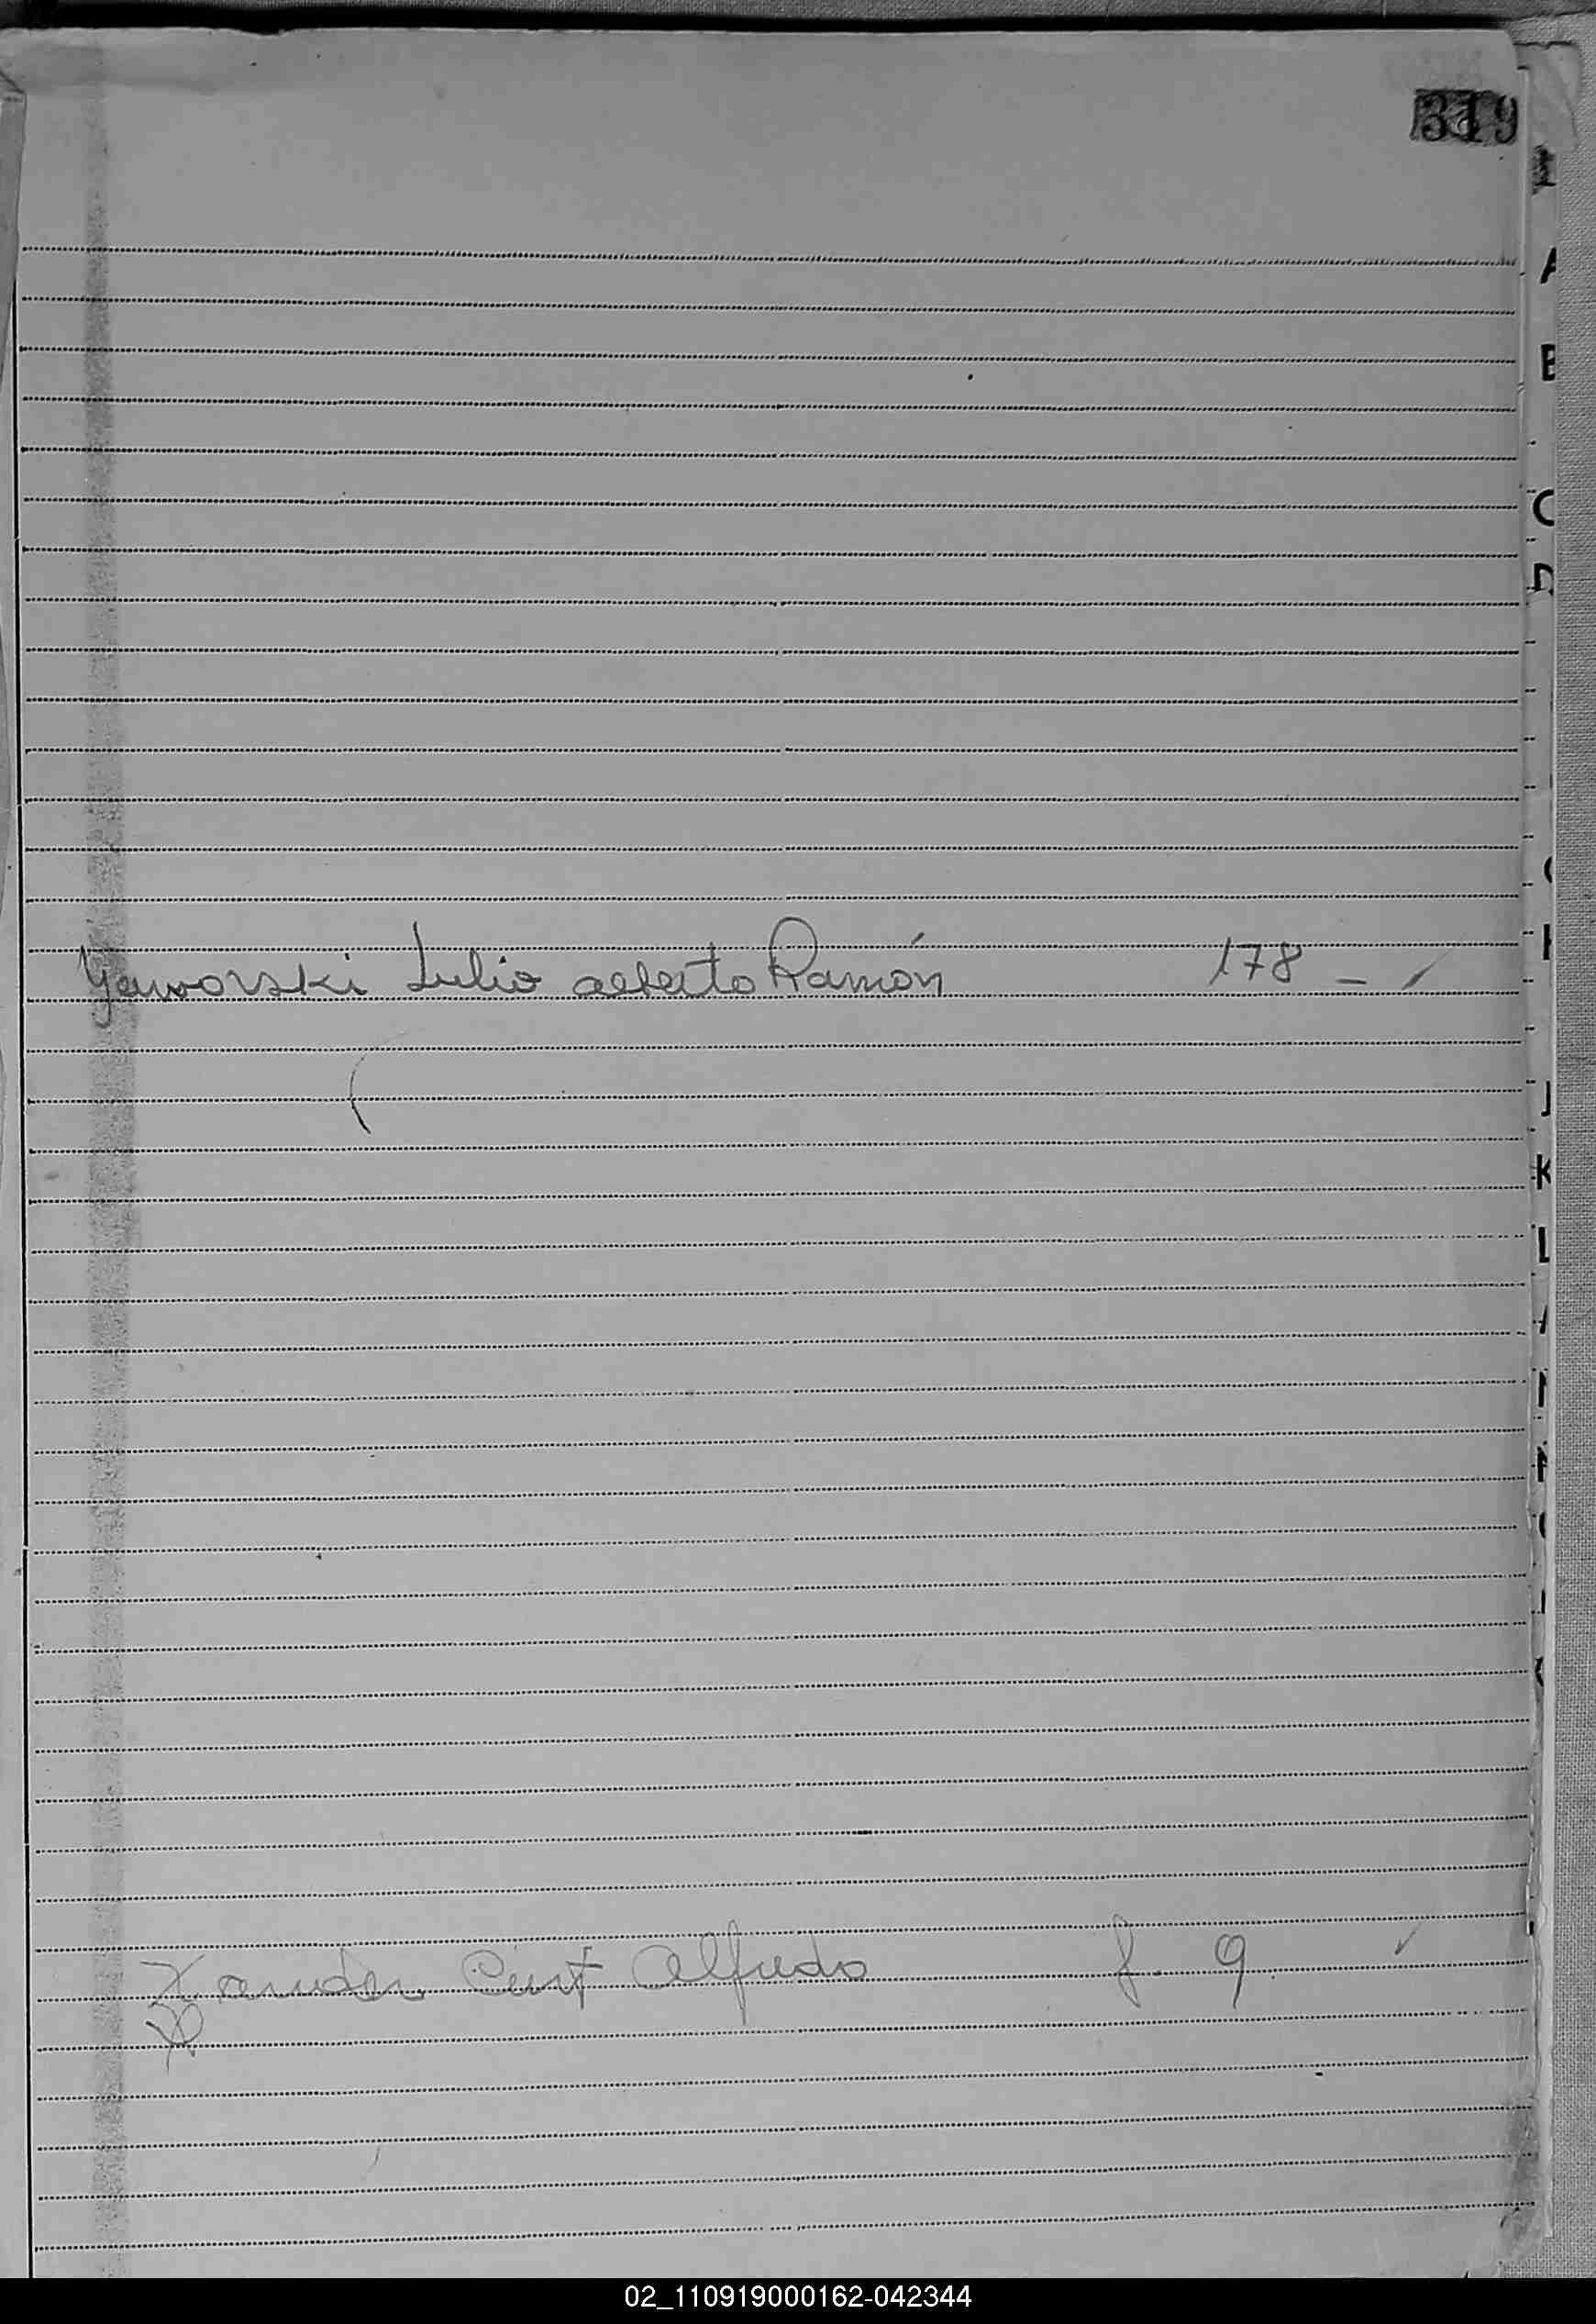 319
A
B
C
D
Yaworski Julio alberto Ramón 178 -
J
K
L
Xander Curt Alfredo f. 9.
02_110919000162-042344